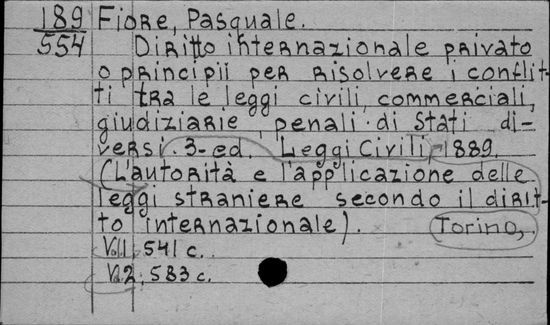 189 Fiore, Pasquale.
554 Diritto internazionale privato
o principii per risolvere i conflit-
ti tra le leggi civili, commerciali,
giudiziarie, penali di Stati di-
versi. 3-ed. Leggi Civili, 1889.
(L'autorità e l'applicazione delle
leggi straniere secondo il dirit-
to internazionale). Torino,.
Vol.1. 541 c.
Vol.2. 583 c.